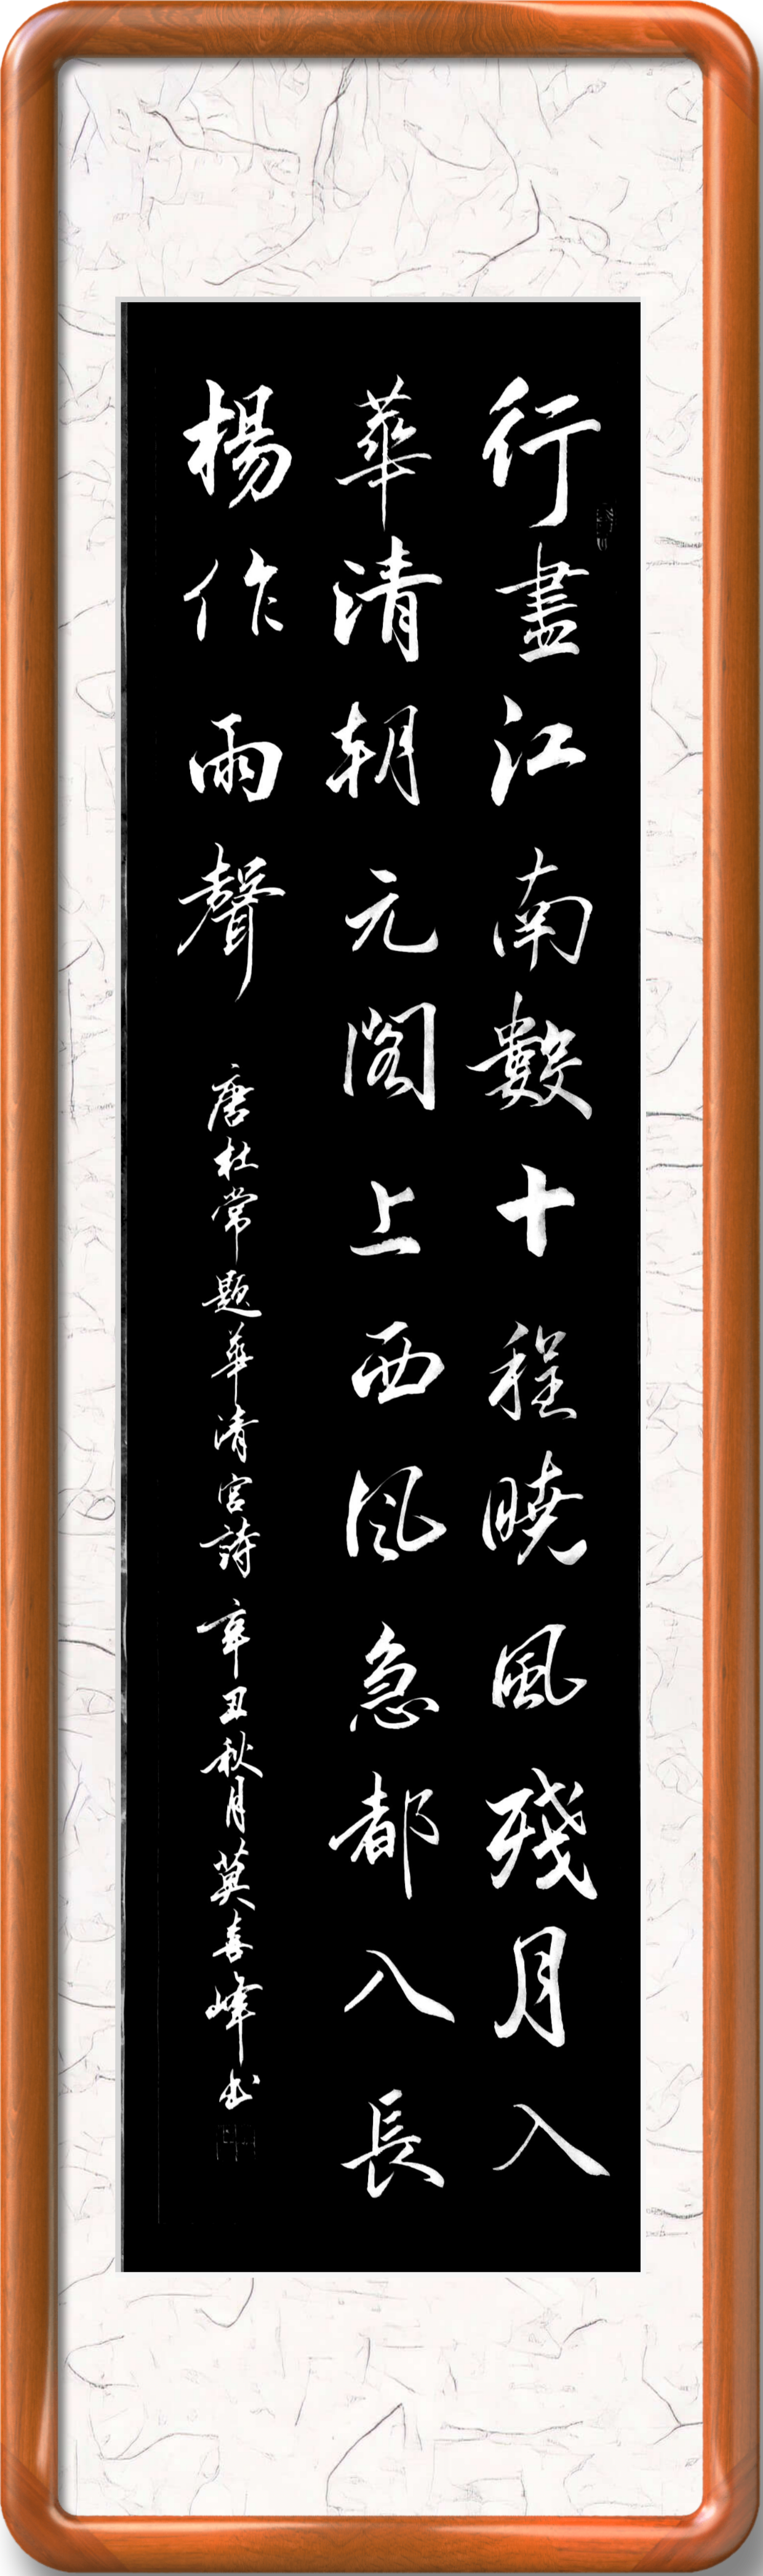 行盡江南數十程曉風殘月入
華清朝元閣上西风急都入長
楊作雨聲
唐杜常題華清宮詩辛丑秋月莫喜峰书